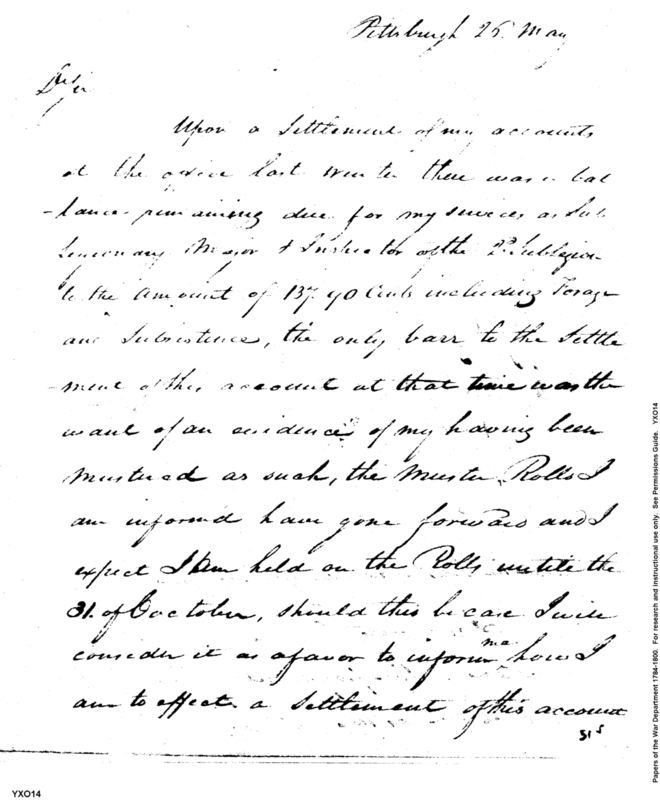 Pittsburgh 25. May
Sir
Upon a Settlement of my accounts
at the office last winter there was a bal
-lance remaining due for my services as Sub
Legionary Major & Instructor of the 2d. Sublegion
to the amount of 137. 90 Cents including Forage
and Subsistence, the only barr to the Settle
-ment of this account at that time was the
want of an evidence of my having been
mustered as such, the Muster Rolls I
am informd have gone forward and I
expect I am held on the Rolls untill the
31. of October, should this be case I will
consider it as a favor to inform me how I
am to effect a Settlement of this account
Papers of the War Department 1784-1800. For research and instructional use only. See Permissions Guide. YXO14
YXO14